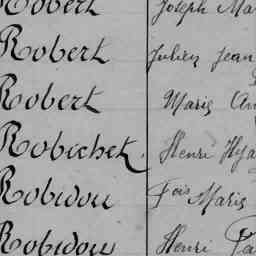 Robert Joseph Ma
Robert Julien Jean
Robert Marie An
Robichek Henri Hya
Robidou Fois Marie
Robidou Henri